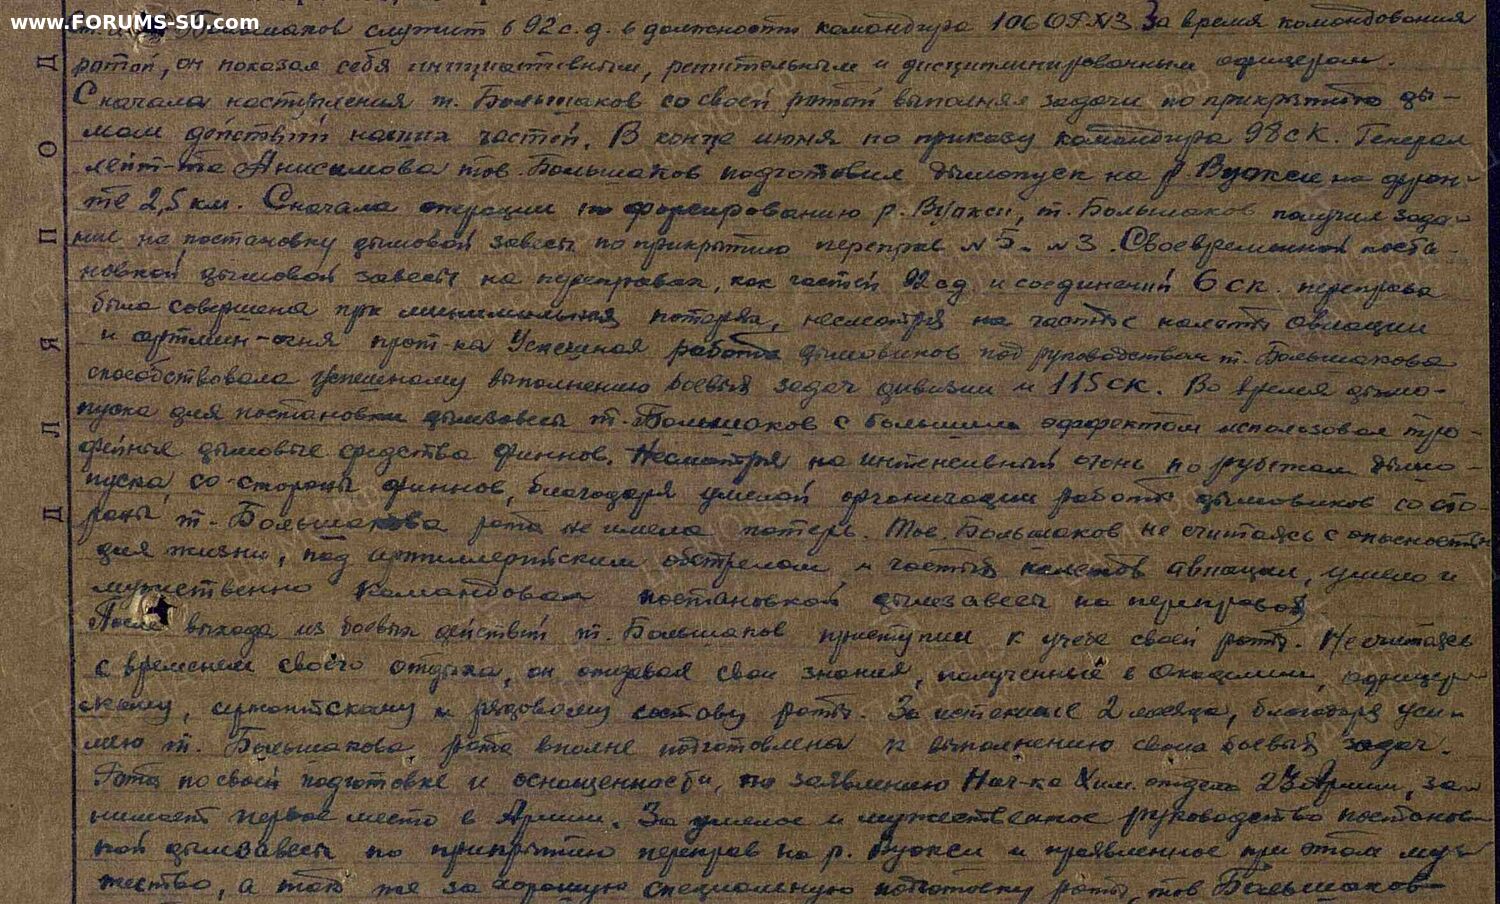 www.FORUMS-SU.com
Большаков служит в 92 с.д. в должности командира 106 ОРХЗ За время командования
ротой, он показал себя инициативным, решительным и дисциплинированным офицером.
С начала наступления т. Большаков со своей ротой выполнял задачи по прикрытию ды-
мом действий наших частей. В конце июня по приказу командира 98 СК. Генерал
лейт-та Анисимова тов. Большаков подготовил дымопуск на р. Вуокси, на фрон-
те 2,5 км. Сначала операции по форсированию р. Вуокси, т. Большаков получил зада-
ние на постановку дымовой завесы по прикрытию переправ №5 - №3. Своевременной поста-
новкой дымовой завесы на переправах, как частей 92 сд и соединений 6 ск. переправа
была совершена при минимальных потерях, несмотря на частые налеты авиации
и артмин-огня прот-ка Успешная работа дымовиков под руководством т. Большакова
способствовала успешному выполнению боевых задач дивизии и 115 СК. Во время дымо-
пуска для постановки дымзавесы т. Большаков с большим эффектом использовал тро-
фейные дымовые средства финнов. Несмотря на интенсивный огонь по рубежам дымо-
пуска, со-стороны финнов, благодаря умелой организации работы дымовиков со сто-
роны т. Большакова рота не имела потерь. Тов. Большаков не считаясь с опасностью
для жизни, под артиллерийским обстрелом и частых налетов авиации, умело и
мужественно командовал постановкой дымзавесы на переправах
После выхода из боевых действий т. Большаков приступил к учебе своей роты. Не считаясь
с временем своего отдыха, он отдавал свои знания, полученные в Академии, офицер-
скому, сержантскому и рядовому составу роты. За истекшие 2 месяца, благодаря уси-
лию т. Большакова рота вполне подготовлена к выполнению своих боевых задач.
Рота по своей подготовке и оснащенности, по заявлению Нач-ка Хим. отдела 23 Армии, за-
нимает первое место в Армии. За умелое и мужественное руководство постанов-
кой дымзавесы по прикрытию переправ на р. Вуокси и проявленное при этом му-
жество, а так же за хорошую специальную подготовку роты, тов Большаков
ДЛЯ ПОД